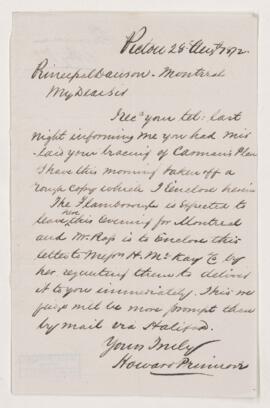 Pictou 28 Augt 1872.
Principal Dawson. Montreal
My Dear Sir
I rec'd your tel: last
night informing me you had mis
laid your tracing of Carman's Plan
I have this morning taken off a
rough copy which I enclose herein
The Flamborough is expected to
leave this evening for Montreal
and Mr. Ross is to enclose this
letter to Messrs H. McKay Co by
her, requesting them to deliver
it to you immediately. This we
judge will be more prompt than
by mail via Halifax.
Yours Truly
Howard Primrose